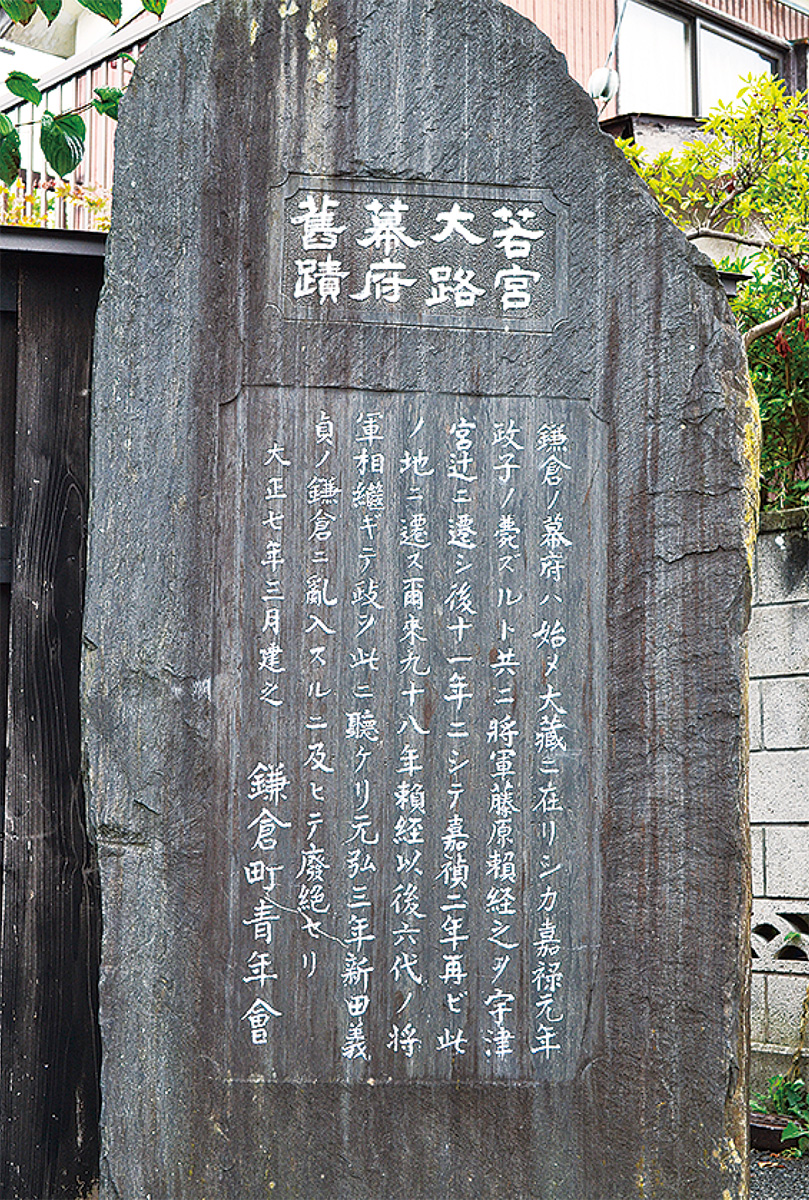 若宮
大路
幕府
舊蹟
鎌倉ノ幕府ハ始メ大藏ニ在リシカ嘉禄元年
政子ノ薨ズルト共ニ將軍藤原頼経之ヲ宇津
宮辻ニ遷シ後十一年ニシテ嘉禎二年再ビ此
ノ地ニ遷ス爾来九十八年頼経以後六代ノ将
軍相継ギテ政ヲ此ニ聽ケリ元弘三年新田義
貞ノ鎌倉ニ亂入スルニ及ヒテ廢絶セリ
大正七年三月建之　鎌倉町青年會